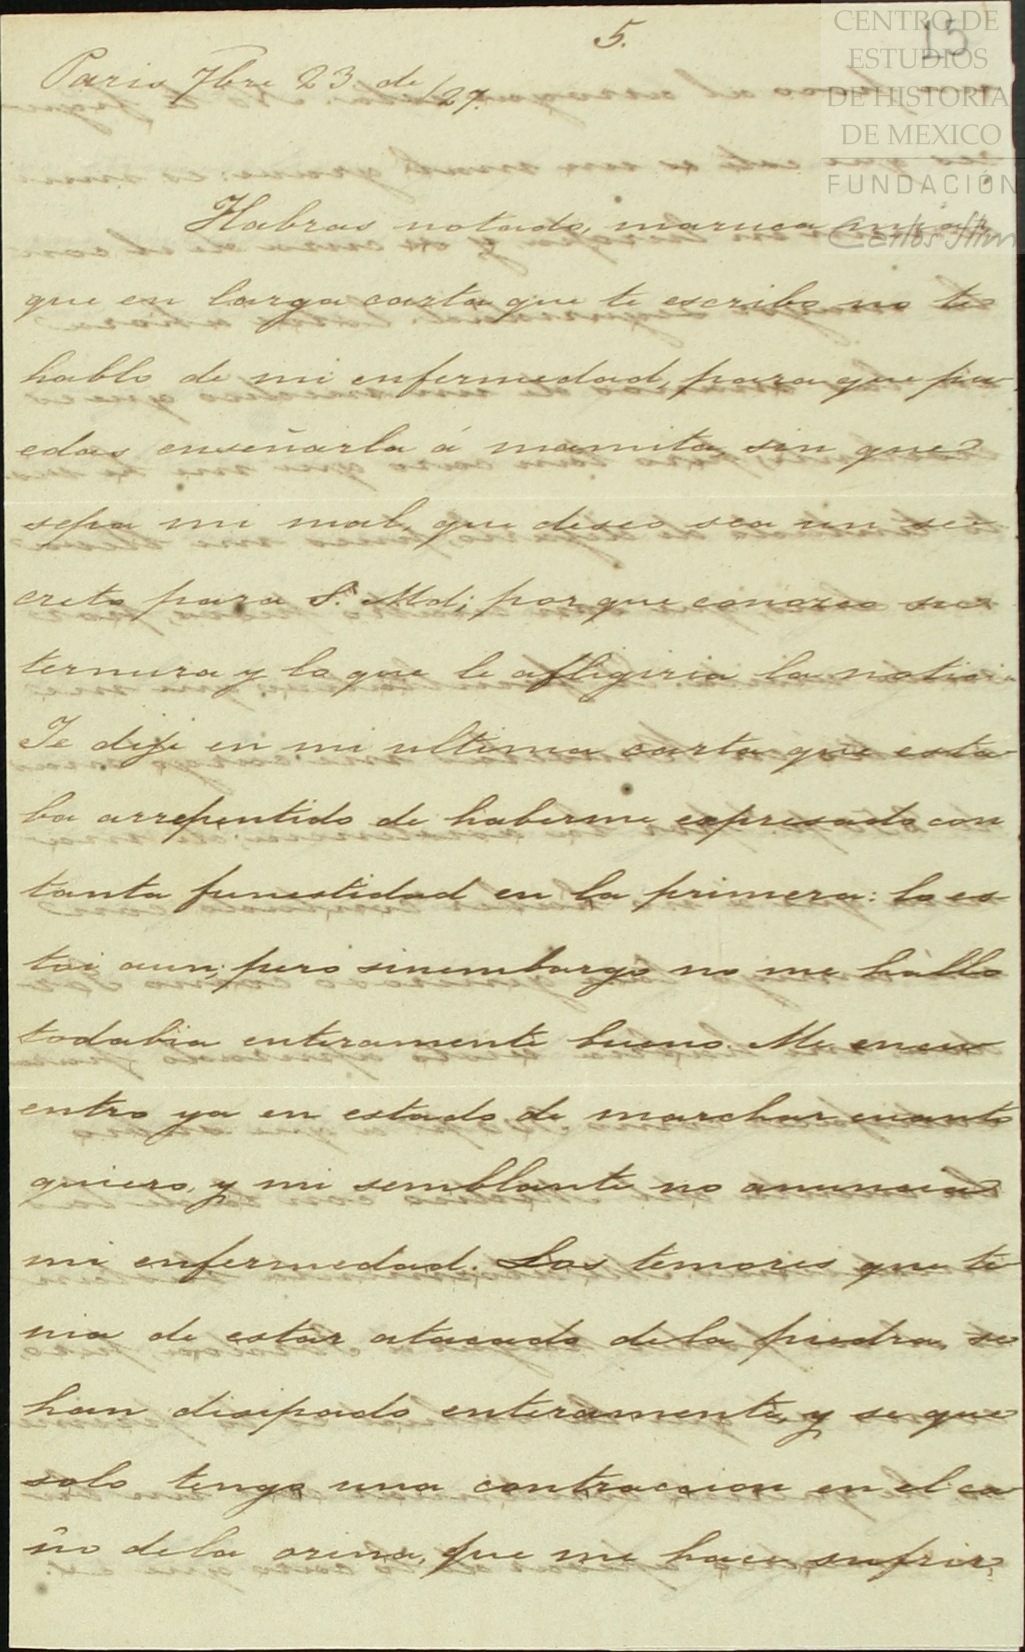 5.
15
CENTRO DE
ESTUDIOS
DE HISTORIA
DE MEXICO
FUNDACIÓN
Carlos Slim
Paris 7bre 23 de /27.
Habras notado, maruca mia,
que en larga carta que te escribo no te
hablo de mi enfermedad, para que pu-
edas enseñarla á mamita, sin que
sepa mi mal, que deseo sea un se-
creto para S. Md; porque conozco su
ternura y lo que le afligiria la notici-
Te dije en mi ultima carta que esta-
ba arrepentido de haberme espresado con
tanta funestidad en la primera: lo es-
toi aun; pero sinembargo no me hallo
todabia enteramente bueno. Me encu-
entro ya en estado de marchar cuanto
quiero, y mi semblante no anuncia
mi enfermedad. Los temores que te-
nia de estar atacado de la piedra, se
han disipado enteramente, y se que
solo tengo una contraccion en el ca-
ño de la orina, que me hace sufrir,